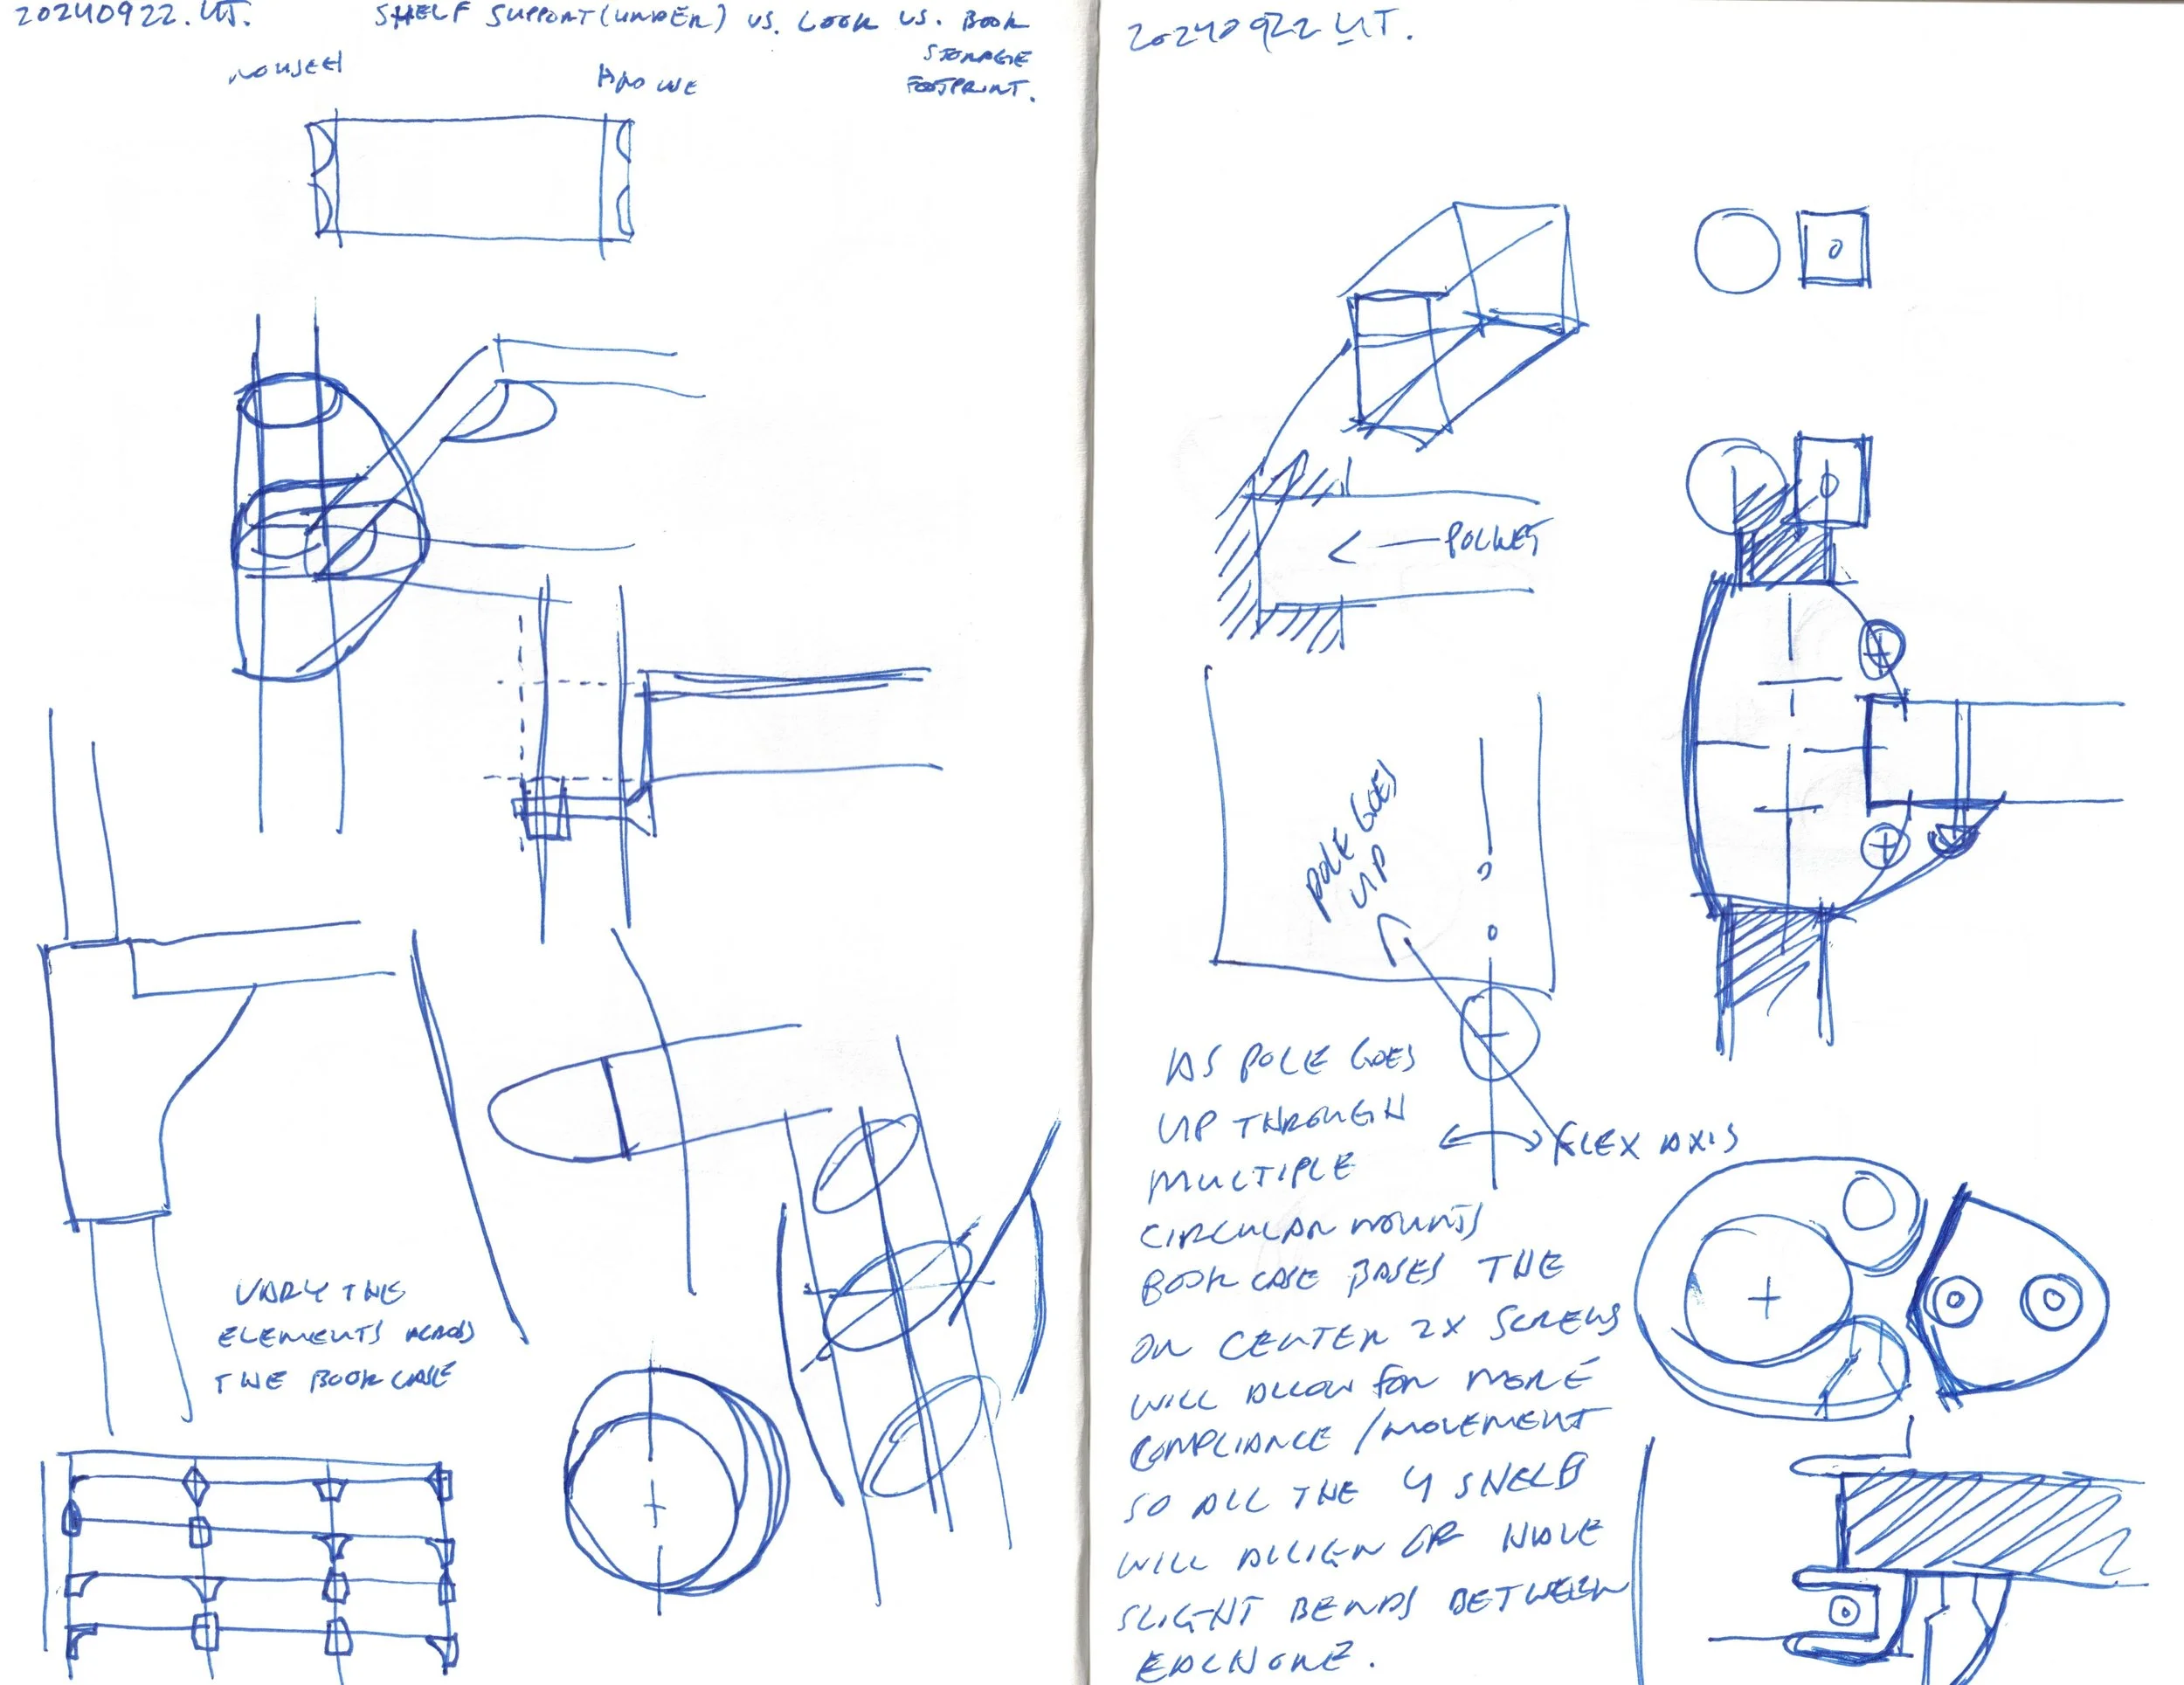 20240922.UT.
SHELF SUPPORT (UNDER) VS. LOOK VS. BOOK
STORAGE
FOOTPRINT.
VARY THE
ELEMENTS ACROSS
THE BOOKCASE
20240922 UT.
POCKET
POLE GOES
UP
FLEX AXIS
AS POLE GOES
UP THROUGH
MULTIPLE
CIRCULAR MOUNTS
BOOKCASE BASES THE
ON CENTER 2X SCREWS
WILL ALLOW FOR MORE
COMPLIANCE / MOVEMENT
SO ALL THE 4 SHELF
WILL ALLIGN OR HAVE
SLIGHT BENDS BETWEEN
EACH ONE.